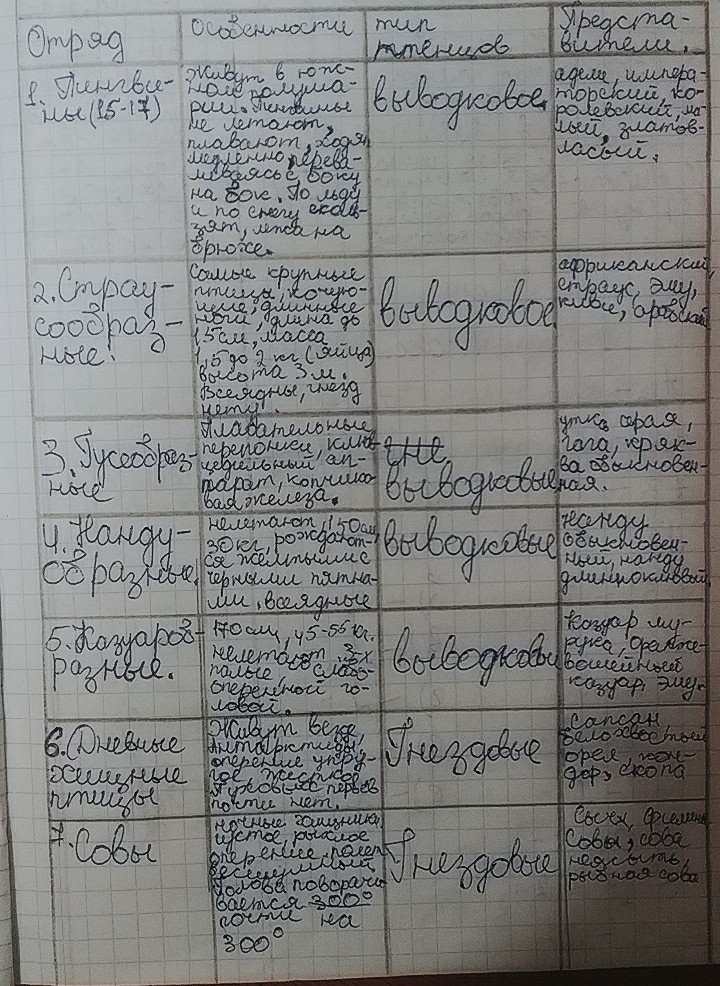 Отряд
Особенности
тип
птенцов
Предста-
вители.
1. Пингви-
ны (15-17)
Живут в юж-
ном полуша-
рии. Пингвины
не летают,
плавают, ходят
медленно, перева-
ливаясь с боку
на бок. По льду
и по снегу сколь-
зят, лежа на
брюхе.
выводковое.
адели, импера-
торский, ко-
ролевский, ма-
лый, златов-
ласый.
2. Страу-
сообраз-
ные.
Самые крупные
птицы, кочую-
щие, длинные
ноги, длина до
15 см, масса
1,5 до 2 кг (яйца)
высота 3 м.
Всеядны, гнезд
нету.
выводковое.
африканский
страус, эму,
киви,
3. Гусеобраз-
ные
Плавательные
перепонки, клюв
цедильный ап-
парат, копчико-
вая железа.
гне
выводковые
утка серая,
гага, кряк-
ва обыкновен-
ная.
4. Нанду-
образные.
нелетают, 150 см,
30 кг, рождают-
ся желтыми с
черными пятна-
ми, всеядные
выводковые
Нанду
обыкновен-
ный, нанду
длинноклювый.
5. Казуаров-
разные.
170 см, 45-55 кг.
нелетают, 3-х
палые, со слабо
оперенной го-
ловой.
выводковы
Казуар му-
рука, оранже-
вошейный
казуар, эму.
6. Дневные
хищные
птицы
Живут везде,
Антарктиды,
оперение упру-
гое жесткое
Пуховых перьев
почти нет.
Гнездовые
Сапсан,
белохвостый
орел, кон-
дор, скопа
7. Совы
ночные хищники
густое, рыхлое
оперение, полет
бесшумный,
голова поворачи
вается 300°
почти на
300°
Гнездовые
Сычи, филины
Совы, сова
неясыть,
рыбная сова